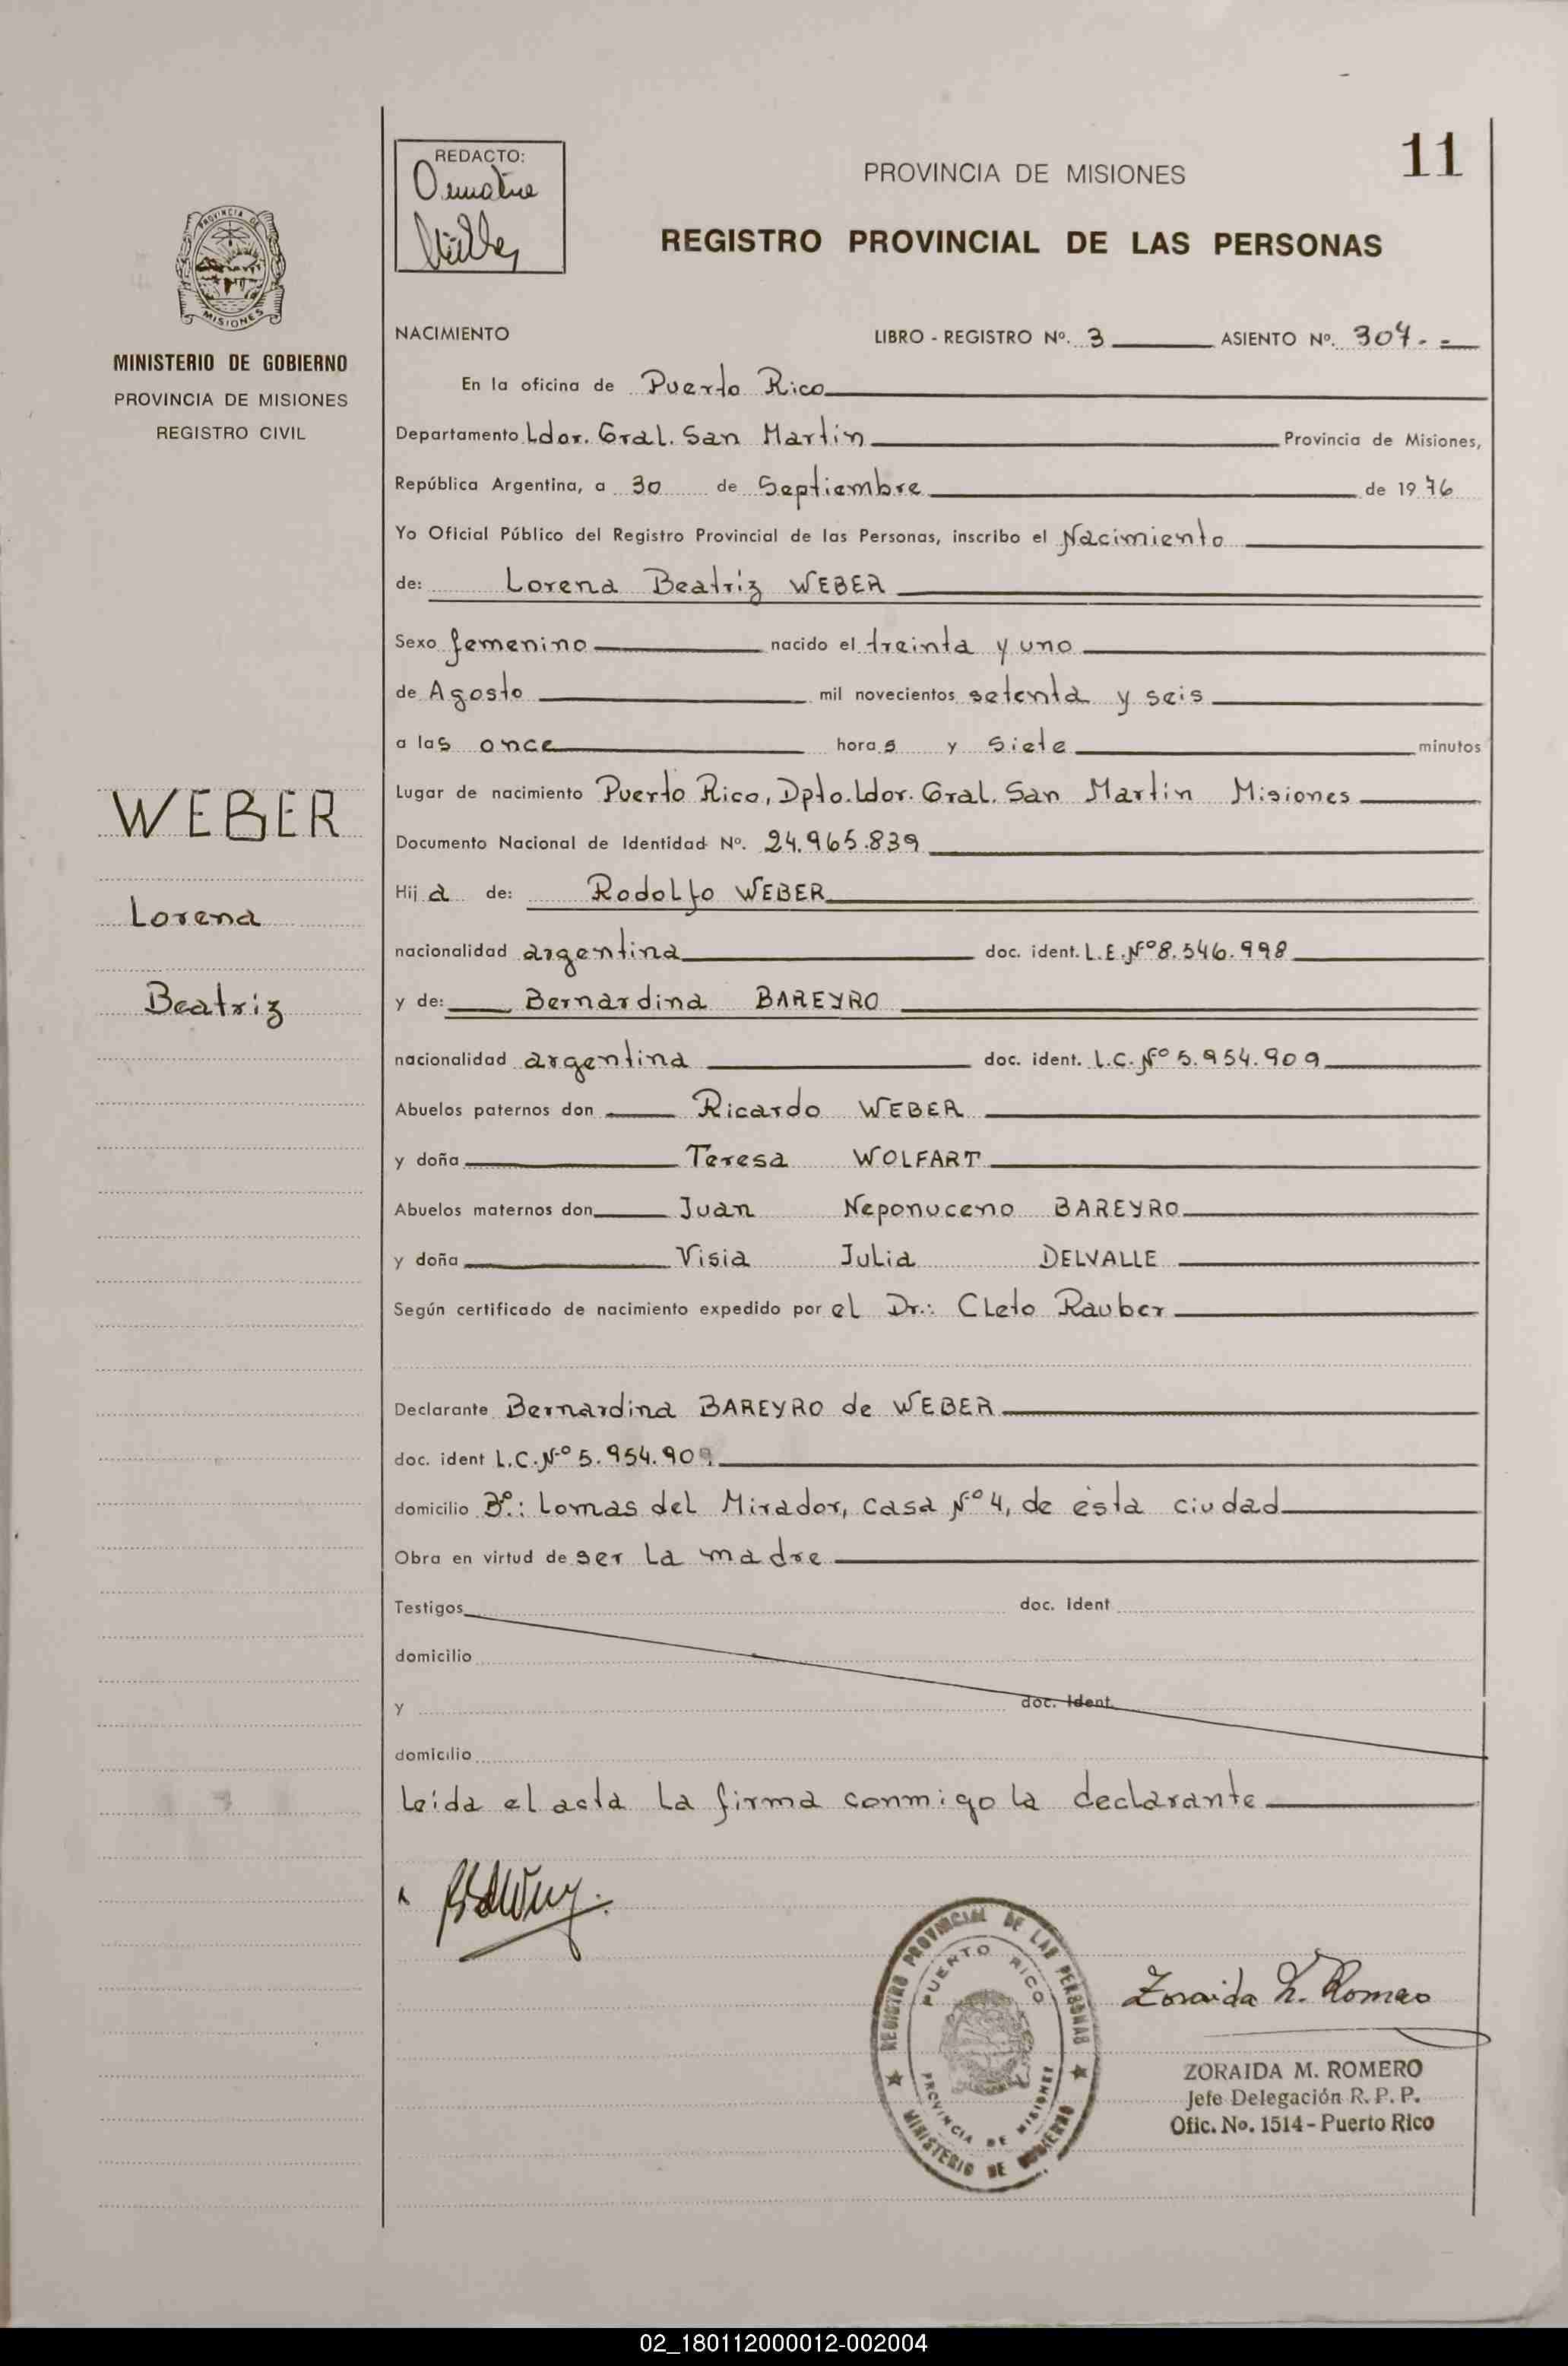 REDACTO:
PROVINCIA DE MISIONES
11
REGISTRO PROVINCIAL DE LAS PERSONAS
PROVINCIA DE MISIONES
MINISTERIO DE GOBIERNO
PROVINCIA DE MISIONES
REGISTRO CIVIL
WEBER
Lorena
Beatriz
NACIMIENTO LIBRO - REGISTRO Nº. 3 ASIENTO Nº. 307.-
En la oficina de Puerto Rico
Departamento Ldor. Gral. San Martin Provincia de Misiones,
República Argentina, a 30 de Septiembre de 1976
Yo Oficial Público del Registro Provincial de las Personas, inscribo el Nacimiento
de: Lorena Beatriz WEBER
Sexo femenino nacido el treinta y uno
de Agosto mil novecientos setenta y seis
a las once horas y siete minutos
Lugar de nacimiento Puerto Rico, Dpto. Ldor. Gral. San Martin Misiones
Documento Nacional de Identidad Nº. 24.965.839
Hija de: Rodolfo WEBER
nacionalidad argentina doc. ident. L.E. Nº 8.546.998
y de: Bernardina BAREYRO
nacionalidad argentina doc. ident. L.C. Nº 5.954.909
Abuelos paternos don Ricardo WEBER
y doña Teresa WOLFART
Abuelos maternos don Juan Neponuceno BAREYRO
y doña Visia Julia DELVALLE
Según certificado de nacimiento expedido por el Dr.: Cleto Rauber
Declarante Bernardina BAREYRO de WEBER
doc. ident L.C. Nº 5.954.909
domicilio Bº.: Lomas del Mirador, Casa Nº 4, de ésta ciudad
Obra en virtud de ser la madre
Testigos doc. Ident
domicilio
y doc. Ident.
domicilio
leída el acta la firma conmigo la declarante
REGISTRO PROVINCIAL DE LAS PERSONAS
PUERTO RICO
PROVINCIA DE MISIONES
MINISTERIO DE GOBIERNO
Zoraida M. Romero
ZORAIDA M. ROMERO
Jefe Delegación R. P. P.
Ofic. No. 1514 - Puerto Rico
02_180112000012-002004